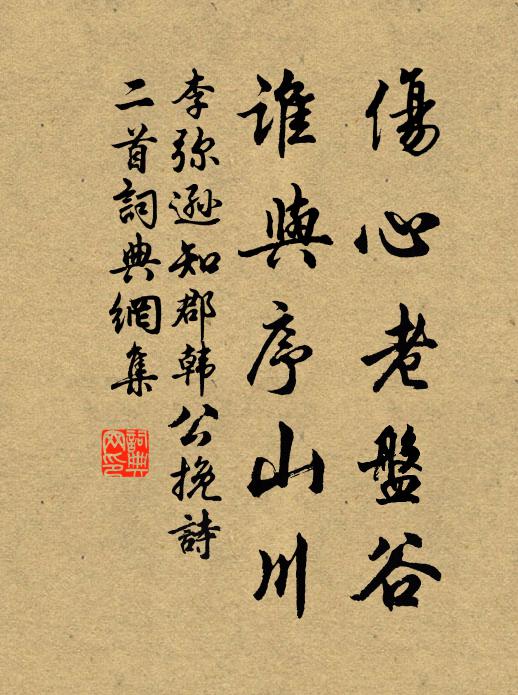 傷心老盤谷
誰與序山川
李弥遜知郡韓公挽詩
二首詞典網集
詞典
网印